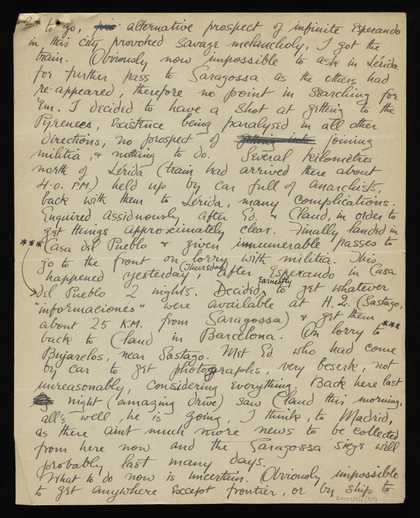 to go, alternative prospect of infinite Esperando
in this city provoked savage melancholy, I got the
train. Obviously now impossible to ask in Lerida
for further pass to Saragossa as the others had
re-appeared, therefore no point in searching for
'em. I decided to have a shot at getting to the
Pyrenees, existence being paralysed in all other
directions, no prospect of joining
militia, & nothing to do. Several kilometres
north of Lerida (train had arrived there about
4.0. PM) held up by car full of anarchists,
back with them to Lerida, many complications.
Enquired assiduously after Ed. & Claud, in order to
get things approximately clear. Finally landed in
*** Casa del Pueblo & given innumerable passes to
go to the front on lorry with militia. This
happened yesterday, (Thursday) After Esperando in Casa
Del Pueblo 2 nights. Decided earnestly to get whatever
"informaciones" were available at H.Q. (Sastago,
about 25 K.M. from Saragossa) & get them
back to Claud in Barcelona. On lorry to ***
Bujarelos, near Sastago. Met Ed who had come
by car to get photographs, very beserk, not
unreasonably, considering everything. Back here last
night (amazing drive) saw Claud this morning,
all's well, he is going, I think, to Madrid,
as there aint much more news to be collected
from here now and the Saragossa siege will
probably last many days.
What to do now is uncertain. Obviously impossible
to get anywhere except frontier, or by ship to